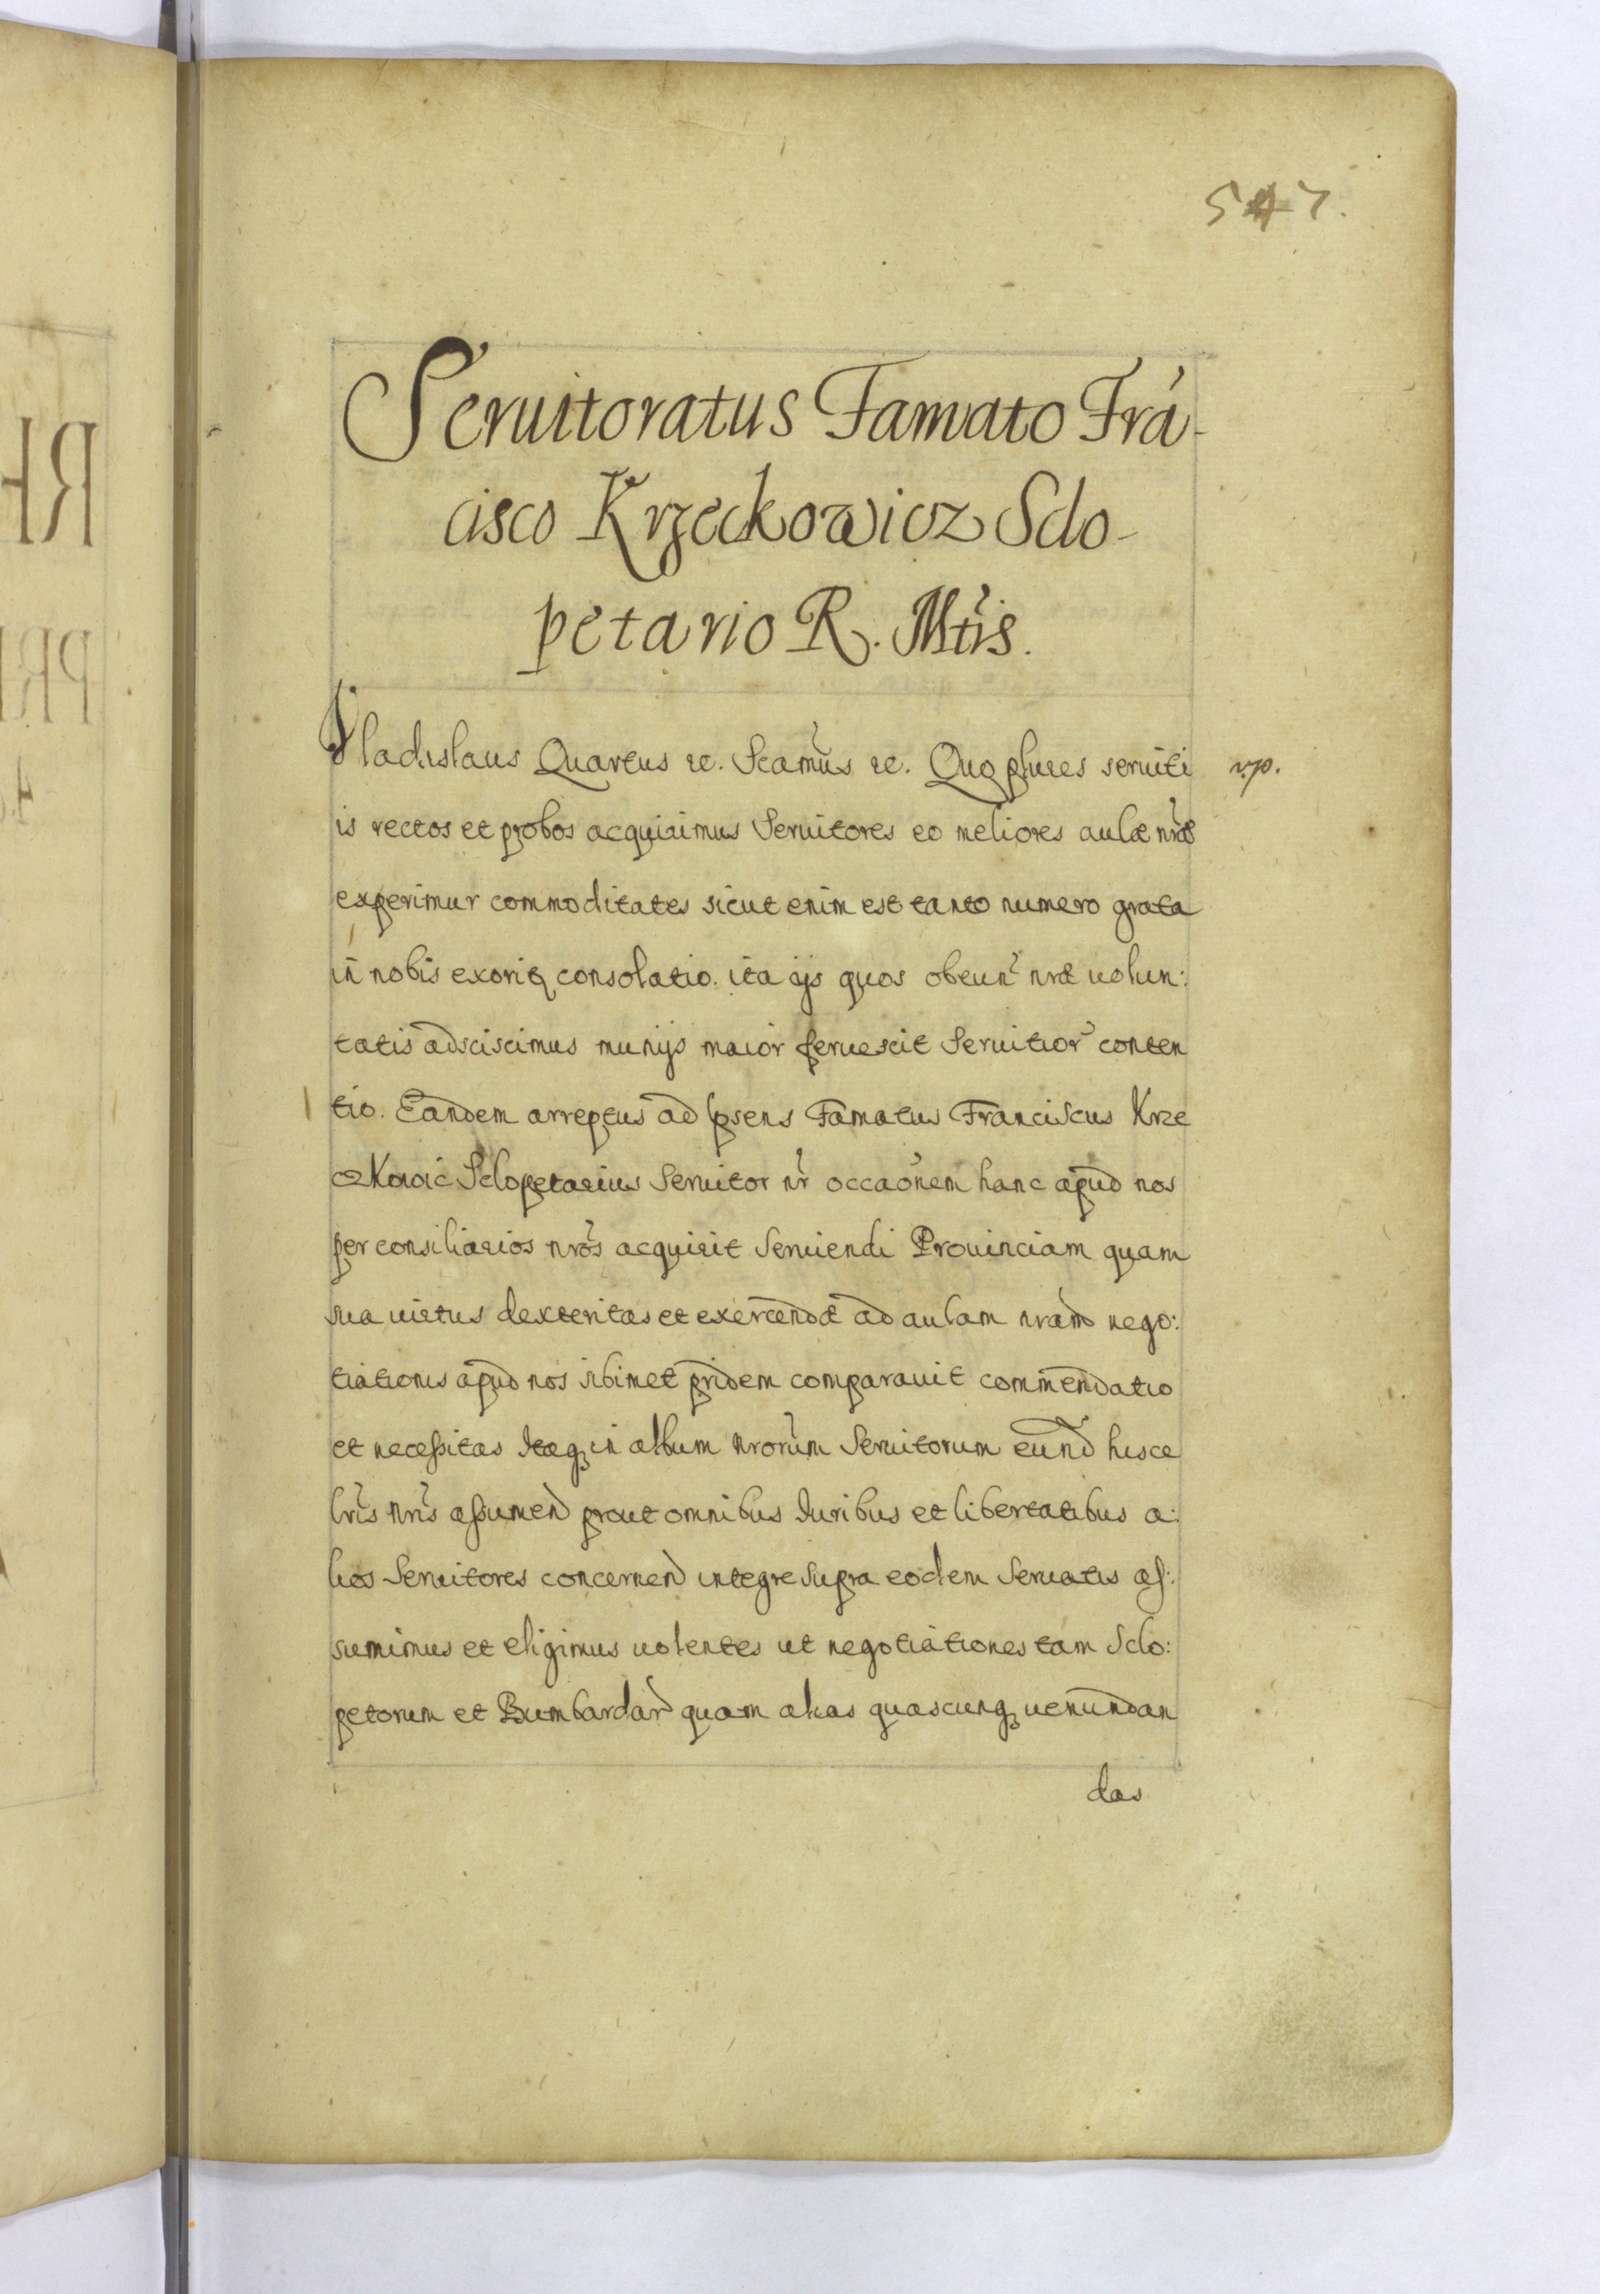 547.
Seruitoratus Famato Frã-
cisco Krzeckowicz Sclo-
petario R. Mtis.
Vladislaus Quartus etc. Scamus etc. Quo plures seruiti
is rectos et probos acquirimus Seruitores eo meliores aulæ nræ
experimur commoditates sicut enim est tanto numero grata
in nobis exoritz consolatio. ita ijs quos obeun nræ uolun:
tatis adsciscimus munijs maior feruescit Seruitior conten
tio. Eandem arreptus ad psens Famatus Franciscus Krze
czkowic Sclopetarius Seruitor nr occaonem hanc apud nos
per consiliarios nros acquirit Seruiendi Prouinciam quam
sua uirtus dexteritas et exercendæ ad aulam nram nego:
tiationis apud nos sibimet pridem comparauit commendatio
et necessitas Itaq in album nrorum Seruitorum eund hisce
lris nris assumend prout omnibus Iuribus et libertatibus a:
lios Seruitores concernend integre supra eodem seruatis as:
sumimus et eligimus uolentes ut negotiationes tam Sclo:
petorum et Bumbardar quam alias quascunq uenundan
das